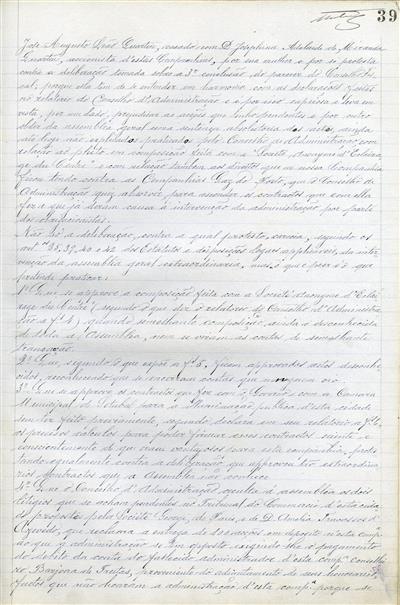 39
José Augusto Leão Quartin, casado com D. Josephina Adelaide de Miranda
Quartin, accionista d'estas Companhias, por sua mulher e por si protesta
contra a deliberação tomada sobre a 3ª conclusão do parecer do Conselho fis-
cal, porque ella tem de se entender em harmonia com as declarações feitas
no relatorio do Conselho d'Administração e é por isso capciosa e leva em
vista, por um lado, prejudicar as acções que estão pendentes e por outro
obter da assemblea geral uma sentença absolutoria dos actos, ainda
até hoje não explicados praticados pelo Conselho de Administração com
relação ao feito em composição feita com a "Société Anonyme d'Eclaira-
ge du Centre" e com relação tambem aos direitos que a nossa Companhia
ficou tendo contra as Companhias Gaz do Porto, que o Conselho de
Administração quiz absorver para annular os contractos que com ella
fez e que já deram causa á intervenção da administração por parte
dos
Não só a deliberação, contra a qual protesto, cerceia, segundo os
artºs 38, 39, 40 e 42 dos Estatutos e disposições legaes applicaveis, da inter-
venção da assemblea geral extraordinaria, mas o que é peor é o que
pretende practicar:
1º Que se approve a composição feita com a Société Anonyme d'Eclai-
rage du Centre (segundo o que diz o relatorio do Conselho d'Adminis-
tração a fl. 4), quando semelhante composição ainda é desconhecida
de toda a Assemblea, nem se viram as contas de semelhante
transacção.
2º Que, segundo o que expõe a fl. 5, ficam approvados actos desconhe-
cidos, reconhecendo que se encerram contas que ninguem viu.
3º Que se approve os contractos que fez com o Governo e com a Camara
Municipal de Setubal para a illuminação publica d'esta cidade
sem ter feito previamente, segundo declara em seu relatorio a fl. 6,
os precisos calculos para poder firmar esses contractos sciente e
conscientemente de que eram vantajosos para esta companhia, protes-
tando egualmente contra a deliberação que approvou tão extraordina-
rios contractos que a Assemblea não conhece.
4º Que o Conselho d'Administração occulta á assemblea os dois
litigios que se acham pendentes no Tribunal do Commercio d'esta cida-
de, propostos pela Société Gorge, de Paris, e de D. Amalia
Azevedo, que reclama a entrega de acções em deposito n'esta comp.ª
ao que a administração se tem opposto exigindo lhe o pagamento
do debito da conta do fallecido administrador d'esta comp.ª conselhei-
ro Barjona de Freitas, proveniente de adiantamento de seus honorarios,
factos que não honram a administração d'esta comp.ª porque se